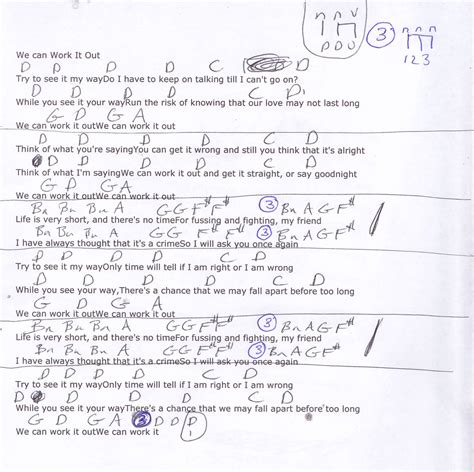 n n v
D D U
③
1 2 3
We can Work It Out
D D D D C D
Try to see it my wayDo I have to keep on talking till I can't go on?
D D D D C D
While you see it your wayRun the risk of knowing that our love may not last long
G D G A
We can work it outWe can work it out
D D D D C D
Think of what you're sayingYou can get it wrong and still you think that it's alright
D D D D C D
Think of what I'm sayingWe can work it out and get it straight, or say goodnight
G D G A
We can work it outWe can work it out
Bm Bm Bm A G G F# F# ③ Bm A G F#
Life is very short, and there's no timeFor fussing and fighting, my friend
Bm Bm Bm A G G F# F# ③ Bm A G F#
I have always thought that it's a crimeSo I will ask you once again
D D D D C D
Try to see it my wayOnly time will tell if I am right or I am wrong
D D D D C D
While you see your way,There's a chance that we may fall apart before too long
G D G A
We can work it outWe can work it out
Bm Bm Bm A G G F# F# ③ Bm A G F#
Life is very short, and there's no timeFor fussing and fighting, my friend
Bm Bm Bm A G G F# F# ③ Bm A G F#
I have always thought that it's a crimeSo I will ask you once again
D D D D C D
Try to see it my wayOnly time will tell if I am right or I am wrong
D D D D C D
While you see it your wayThere's a chance that we may fall apart before too long
G D G A ③ D D D
We can work it outWe can work it